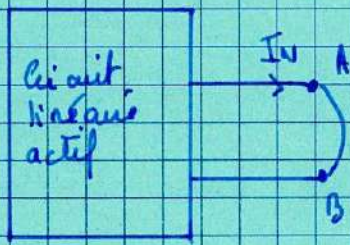 Circuit
linéaire
actif
IN
A
B